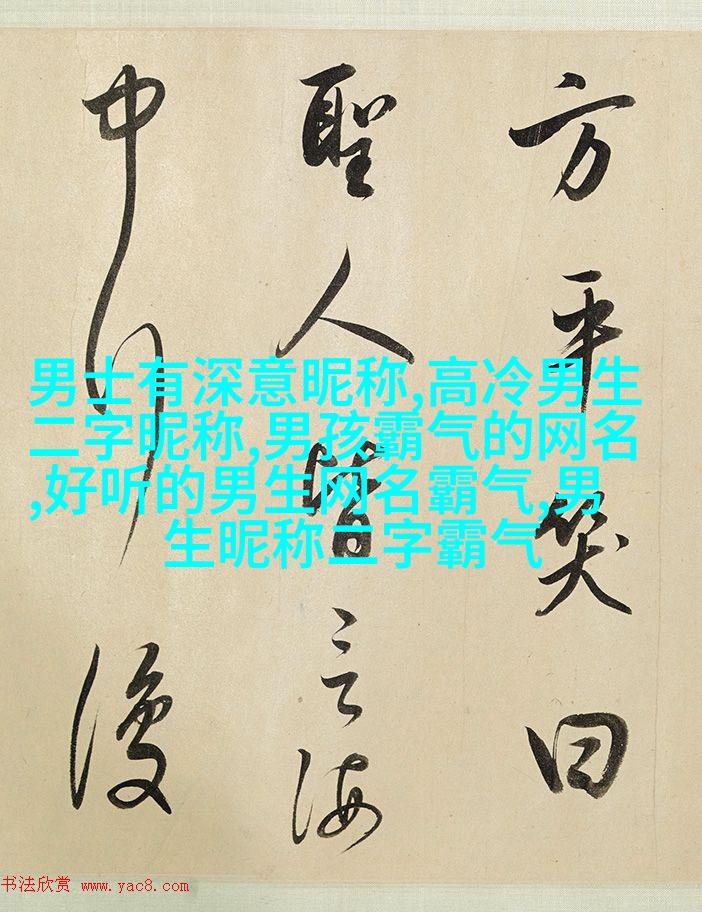 方平笑曰
聖人皆言海
中行復
男士有深意昵称,高冷男生
二字昵称,男孩霸气的网名
,好听的男生网名霸气,男
生昵称二字霸气
书法欣赏 www.yac8.com